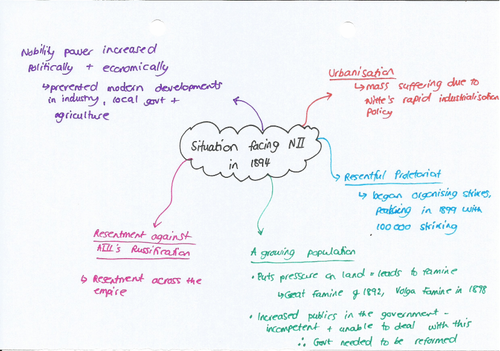 Nobility power increased
politically + economically
↳ prevented modern developments
in industry, local govt +
agriculture
Urbanisation
↳ mass suffering due to
Witte's rapid industrialisation
policy
Situation facing NII
in 1894
Resentful Proletariat
↳ began organising strikes,
peaking in 1899 with
100 000 striking
Resentment against
AIII's Russification
↳ Resentment across the
empire
A growing population
• Puts pressure on land + leads to famine
↳ Great famine of 1892, Volga famine in 1898
• Increased publics in the government -
incompetent + unable to deal with this
∴ Govt needed to be reformed